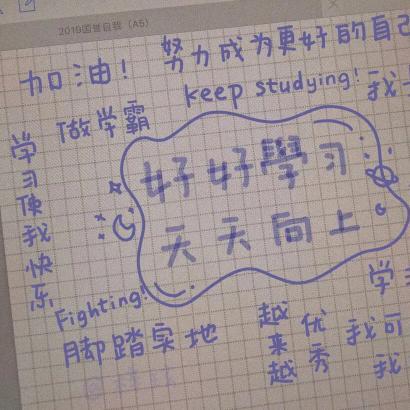 2019国誉自我（A5）
努力成为更好的自己
加油！
keep studying!
我
做学霸
学习使我快乐
好好學习
天天向上
Fighting!
学
脚踏实地
越来越优秀
我可
我